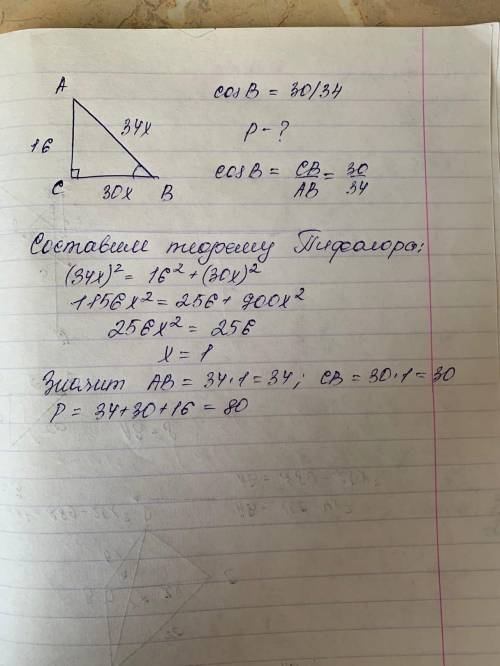 A
16
34x
C
30x
B
cos B = 30/34
P - ?
cos B = CB/AB = 30/34
Составим теорему Пифагора:
(34x)² = 16² + (30x)²
1156x² = 256 + 900x²
256x² = 256
x = 1
Значит AB = 34·1 = 34; CB = 30·1 = 30
P = 34 + 30 + 16 = 80